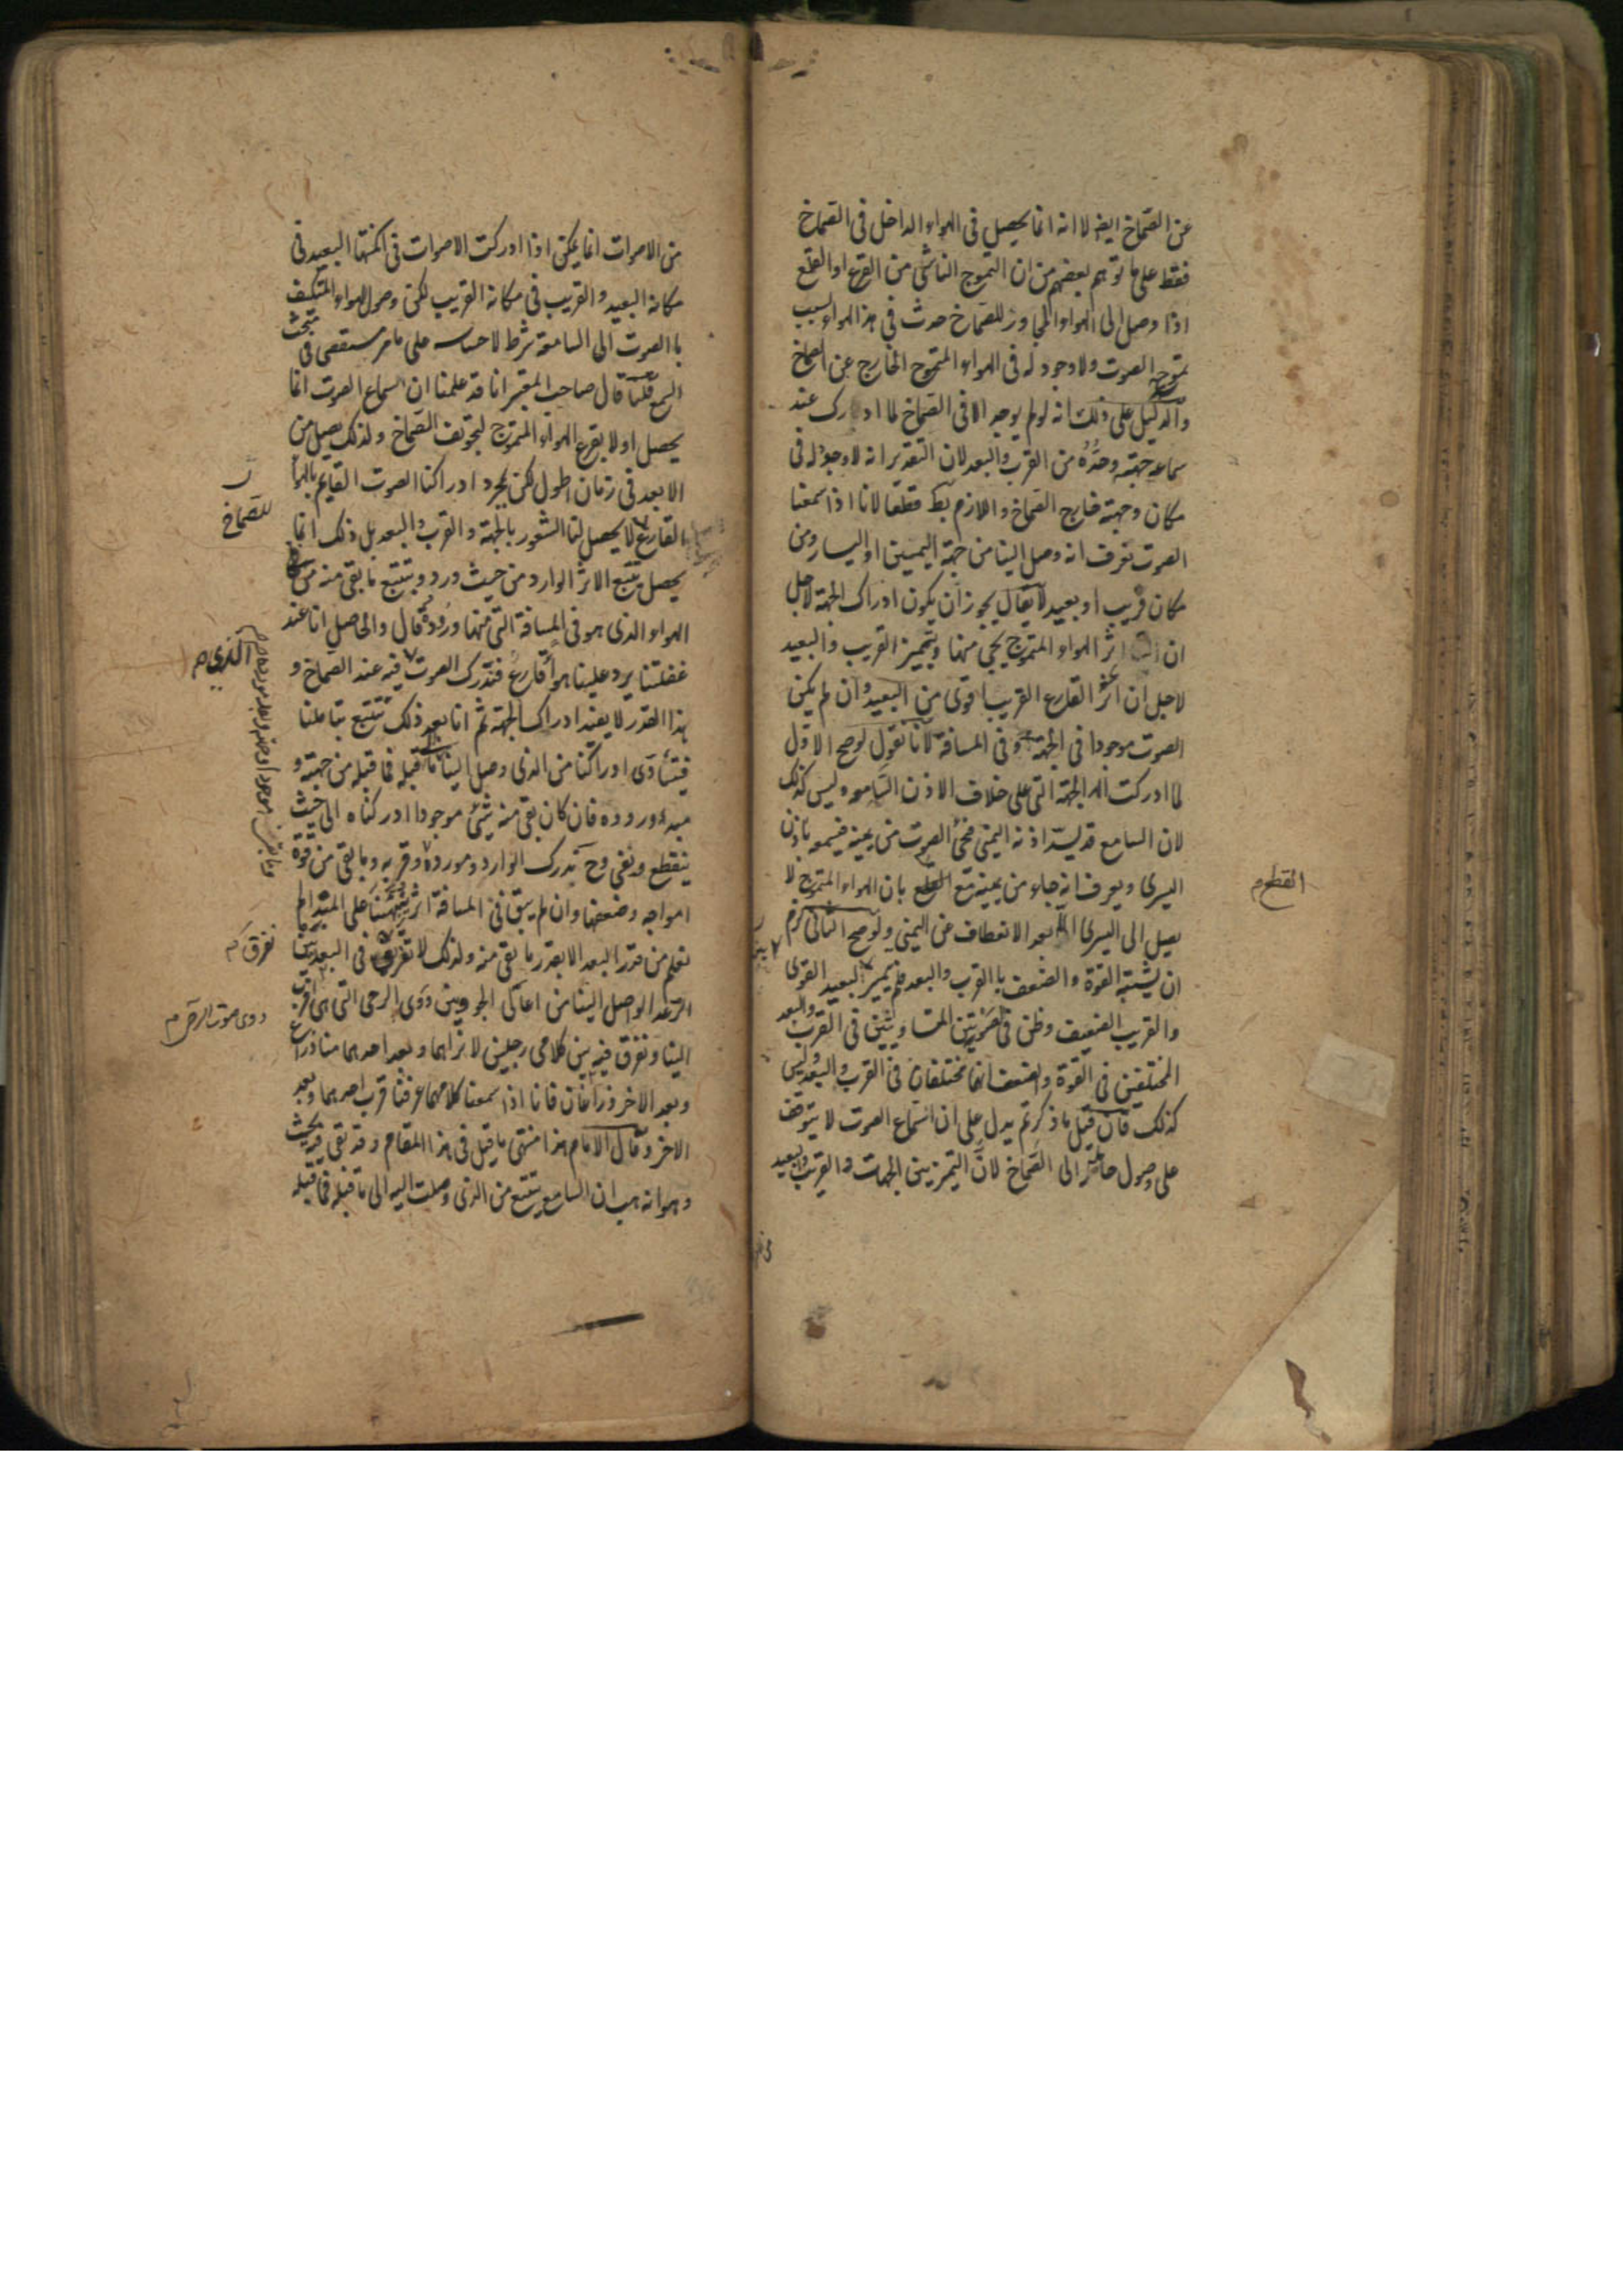 عن الصماخ ايضا لا انه انما يحصل فى الهواء الداخل فى الصماخ
فقط على ما توهم بعضهم من ان التموج الناشى من القرع او القلع
اذا وصل الى الهواء المجاور للصماخ حدث فى هذا الهواء بسبب
تموجه الصوت ولا وجود له فى الهواء المتموج الخارج عن الصماخ
والدليل على ذلك انه لو لم يوجد الا فى الصماخ لما ادرك عند
سماعه جهته وحده من القرب والبعد لان التقدير انه لا وجود له فى
مكان وجهة خارج الصماخ واللازم بط قطعا لانا اذا سمعنا
الصوت نعرف انه وصل الينا من جهة اليمين او اليسار ومن
مكان قريب او بعيد لا يقال يجوز ان يكون ادراك الجهة لاجل
ان اثر الهواء المتموج يجى منها وتميز القريب والبعيد
لاجل ان اثر القارع القريب اقوى من البعيد وان لم يكن
الصوت موجودا فى الجهة وفى المسافة لانا نقول لو صح الاول
لما ادركت الجهة التى على خلاف الاذن السامعه وليس كذلك
لان السامع قد يسد اذنه اليمنى فيجئ الصوت من يمينه فيسمعه باذن
اليسرى ويعرف انه جاء من يمينه مع القطع بان الهواء المتموج لا
يصل الى اليسرى الا بعد الانعطاف عن اليمنى ولو صح الثانى لزم
ان يشتبه القوة والضعف بالقرب والبعد فلم يميز البعيد القوى
والقريب الضعيف وظن فى الصوتين المتساويين فى القرب والبعد
المختلفين فى القوة والضعف انهما مختلفان فى القرب والبعد وليس
كذلك فان قيل ما ذكرتم يدل على ان استماع الصوت لا يتوقف
على وصول حامله الى الصماخ لان التميز بين الجهات والقريب والبعيد
القطع م
من الاصوات انما يمكن اذا ادركت الاصوات فى امكنتها البعيد فى
مكانه البعيد والقريب فى مكانه القريب لكن وصول الهواء المتكيف
بالصوت الى السامعة شرط لاحساسه على ما مر مستقصى فى مبحث
السمع قلنا قال صاحب المعتبر انا قد علمنا ان السماع الصوت انما
يحصل اولا بقرع الهواء المتموج لتجويف الصماخ ولذلك يصل من
الابعد فى زمان اطول لكن بمجرد ادراكنا الصوت القايم بالهواء
القارع لا يحصل لنا الشعور بالجهة والقرب والبعد بل ذلك انما
يحصل بتتبع الاثر الوارد من حيث ورد وبتتبع ما بقى منه فى
الهواء الذى هو فى المسافة التى منها وروده قال والحاصل انا عند
غفلتنا يرد علينا هواء قارع فندرك الصوت فيه عند الصماخ و
هذا القدر لا يفيد ادراك الجهة ثم انا بعد ذلك نتتبع بتاملنا
فيتأدى ادراكنا من الذى وصل الينا الى ما قبله فما قبله من جهته و
مبدء وروده فان كان بقى منه شئ موجودا ادركناه الى حيث
ينقطع ويفنى وح ندرك الوارد ومورده وقربه وما بقى من قوة
امواجه وضعفها وان لم يبق فى المسافة اثر ينتهى بنا على المبدا لم
نعلم من قدر البعد الا بقدر ما بقى منه ولذلك لا نفرق فى البعد بين
الرعد الواصل الينا من اعالى الجو وبين دوى الرحى التى هى اقرب
الينا ونفرق فيه بين كلامى رجلين لا نراهما وبعد احدهما منا ذراع
وبعد الاخر ذراعان فانا اذا سمعنا كلامهما عرفنا قرب احدهما وبعد
الاخر وقال الامام هذا منتهى ما قيل فى هذا المقام وقد بقى فيه بحث
وهو انه هب ان السامع يتتبع من الذى وصلت اليه الى ما قبله فما قبله
للصماخ
الذى م
نفرق
دوى صوت الرحى م